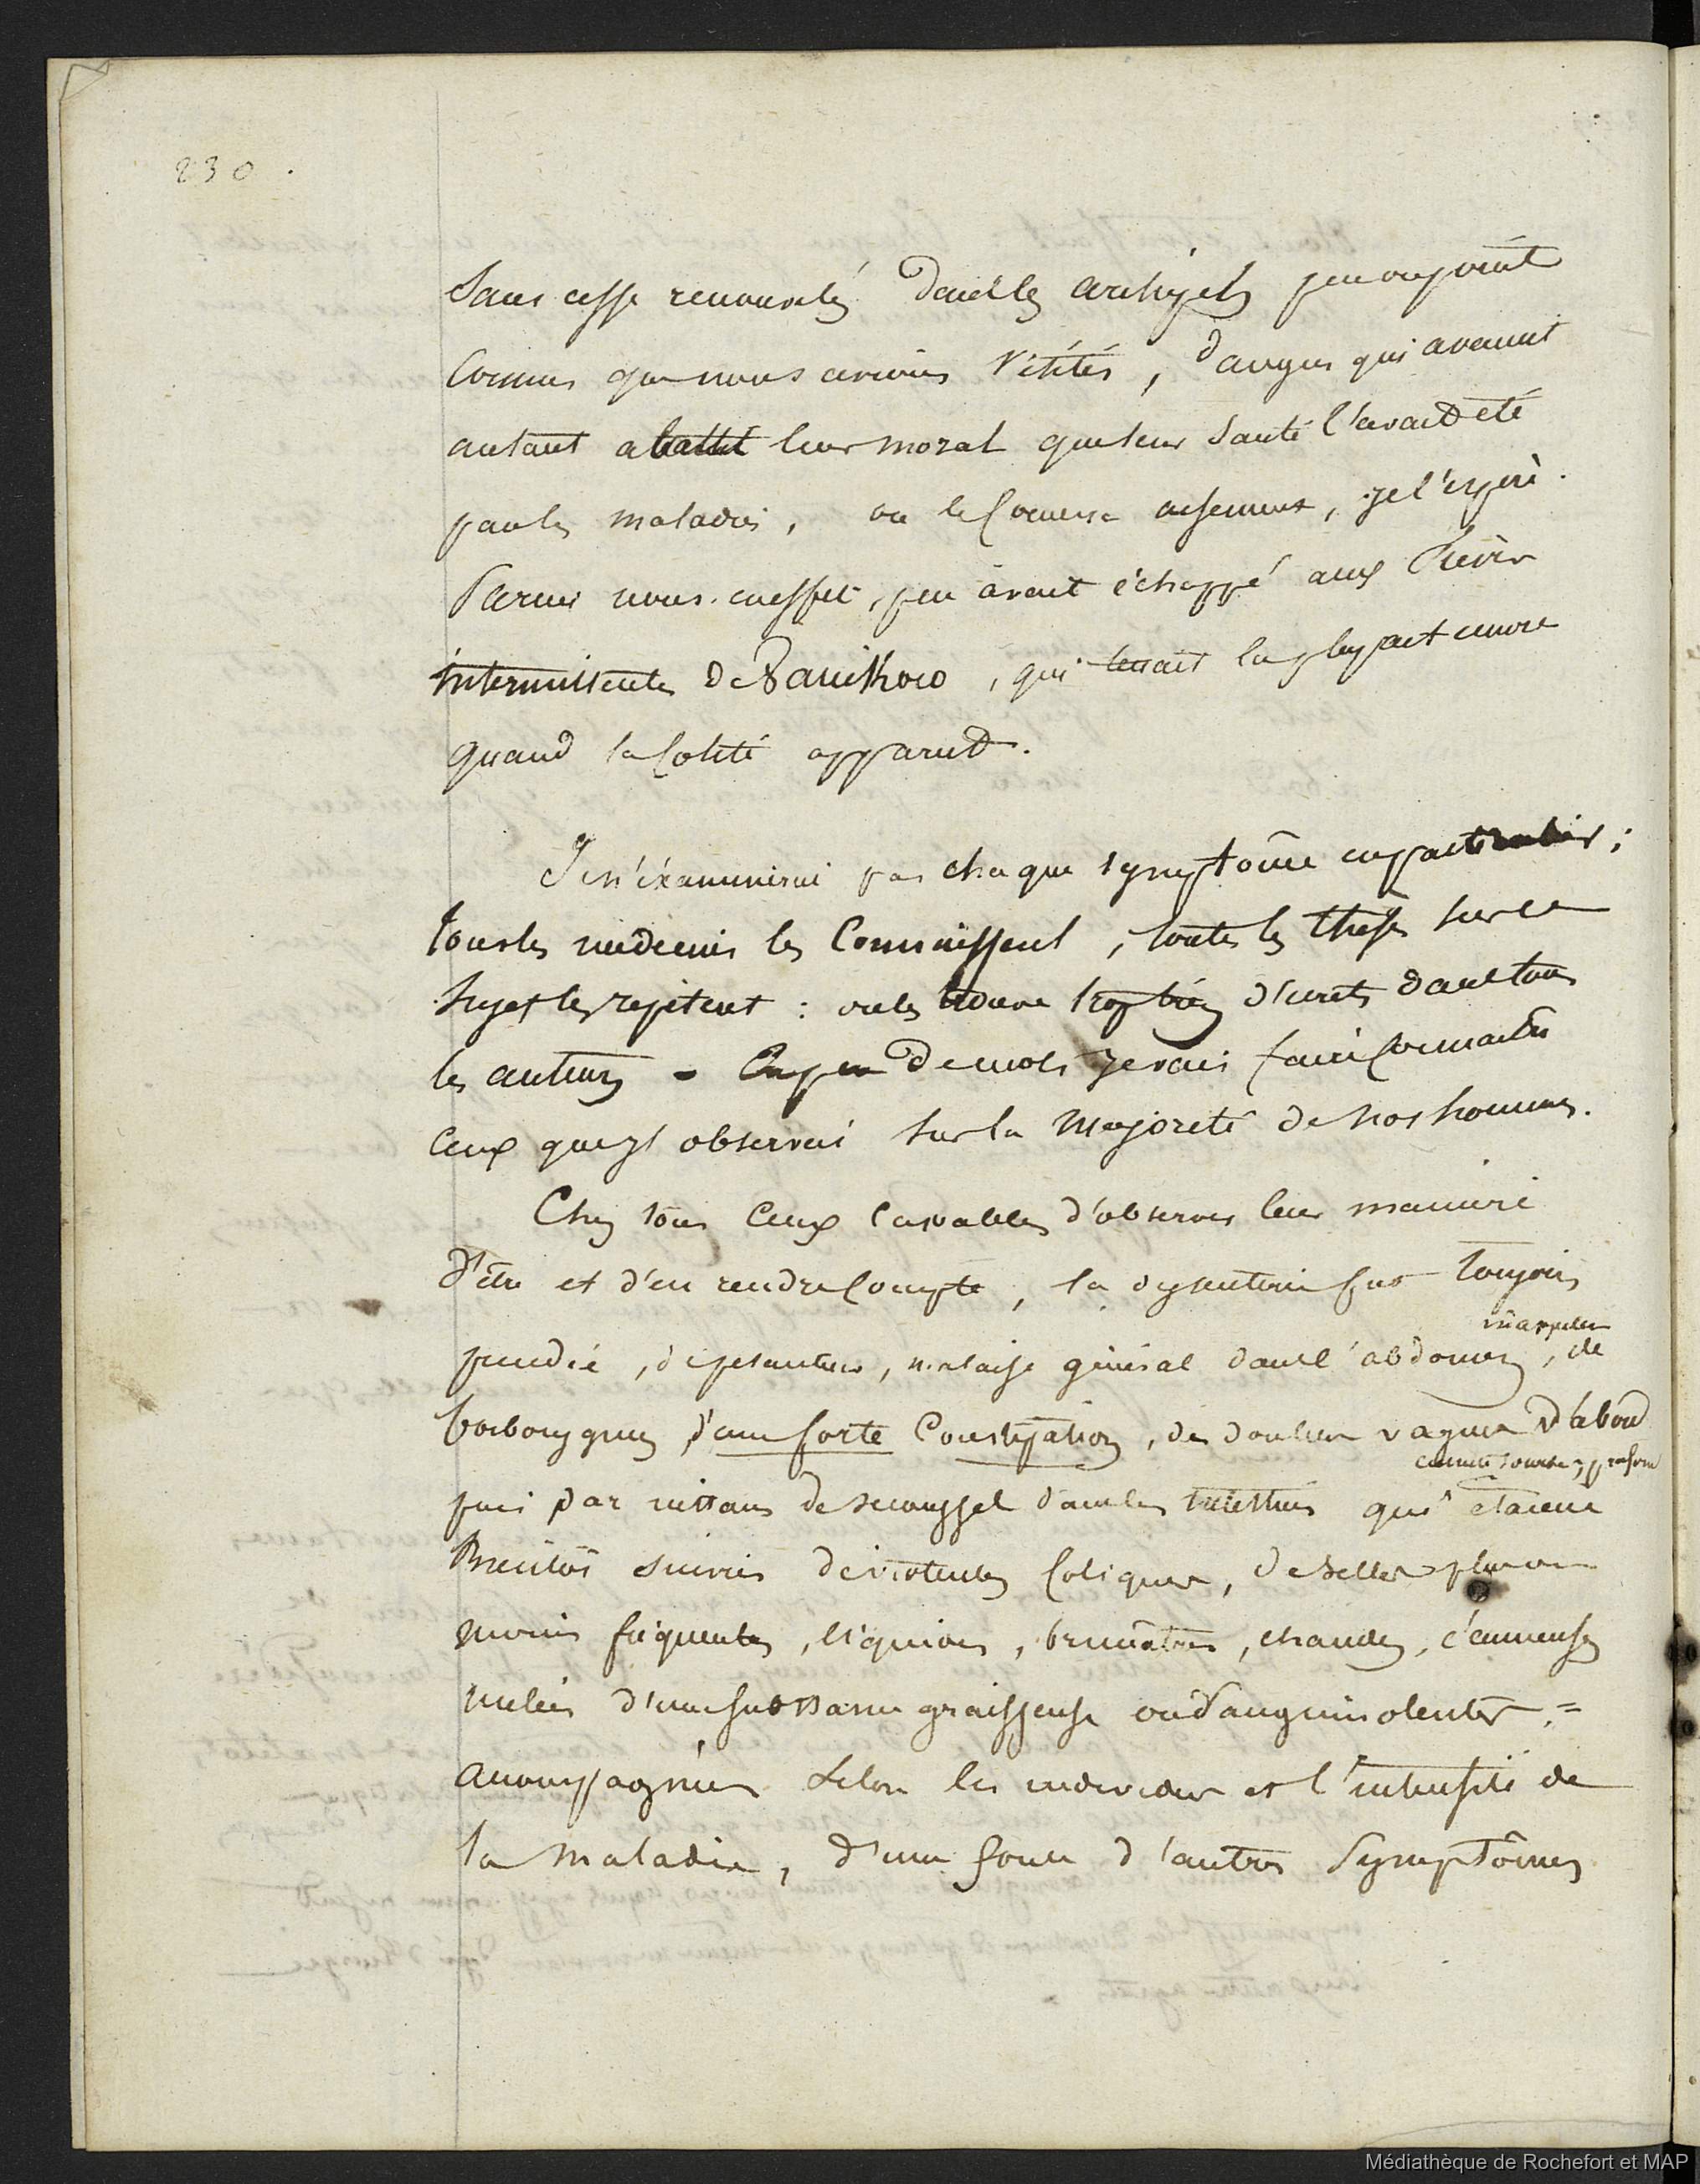 230.
Sans cesse renouvelés dans les archipels peu ou point
Connus que nous avions visités, dangers qui avaient
autant abattu leur moral que leur Santé l'avait été
par les maladies, on le Concevra aisement, je l'espère.
Parmi nous. en effet, peu avait échappé aux fièvres
intermittentes de Vanikoro, qui tenait la plupart encore
quand la Colite apparut.
Je n'éxaminerai pas chaque symptôme en particulier;
tous les médecins les Connaissent, toutes les thèses sur ce
Sujet les repètent : on les trouve trop bien décrits dans tous
les auteurs - En peu de mots je vais faire Connaitre
Ceux que j'observai Sur la Majorité de nos hommes.
Chez tous Ceux Capables d'observer leur manière
d'être et d'en rendre Compte, la dysenterie fut toujours
précédée, de pesanteur, malaise général dans l'abdomen, de
inappetence
borborygmes, d'une forte Constipation, de douleurs vagues d'abord
ensuite sourdes, profondes
puis par instans de dans les intestins qui étaient
Bientôt suivies de violentes Coliques, de selles plus ou
moins fréquentes, liquides, brunâtres, chaudes, écumeuses
mêlées d'une substance graisseuse ou Sanguinolentes, =
accompagnées Selon les individus et l'intensité de
la Maladie, d'une foule d'autres Symptômes
Médiathèque de Rochefort et MAP